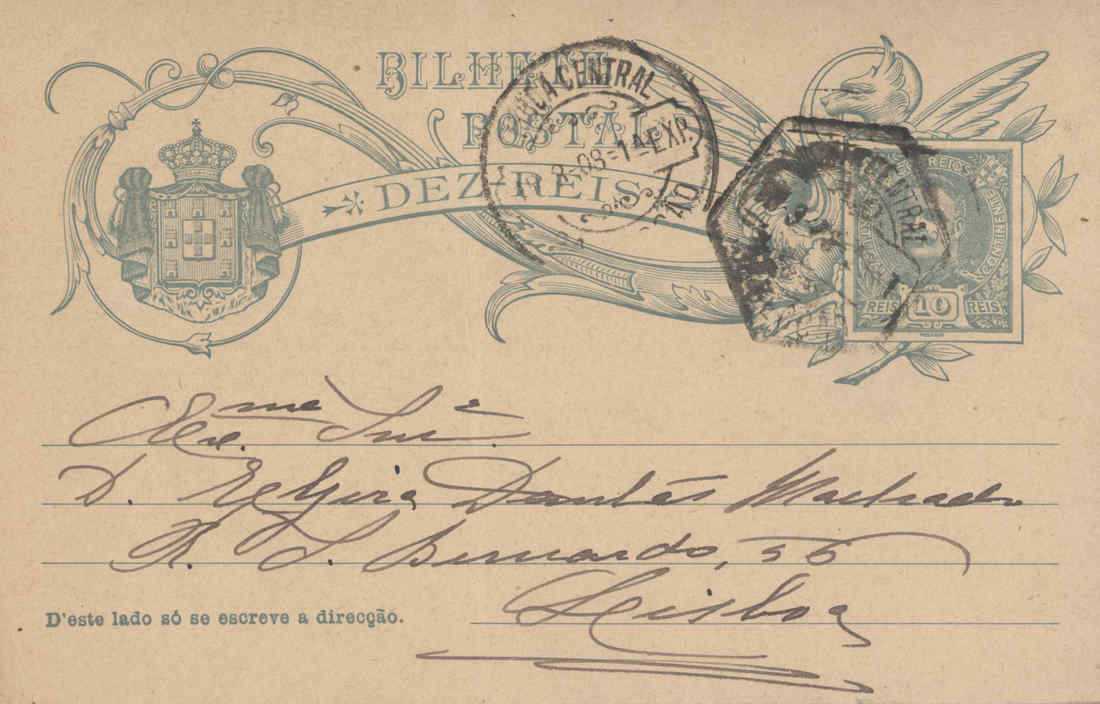 BILHETE
POSTAL
DEZ-REIS
CENTRAL
1ª EXP.
CENTRAL
REIS 10 REIS
Exma Snrª
D. Elzira Dantas Machado
R. S. Bernardo, 56
Lisboa
D'este lado só se escreve a direcção.